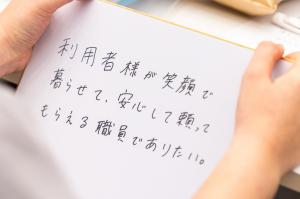 利用者様が笑顔で
暮らせて、安心して頼って
もらえる職員でありたい。